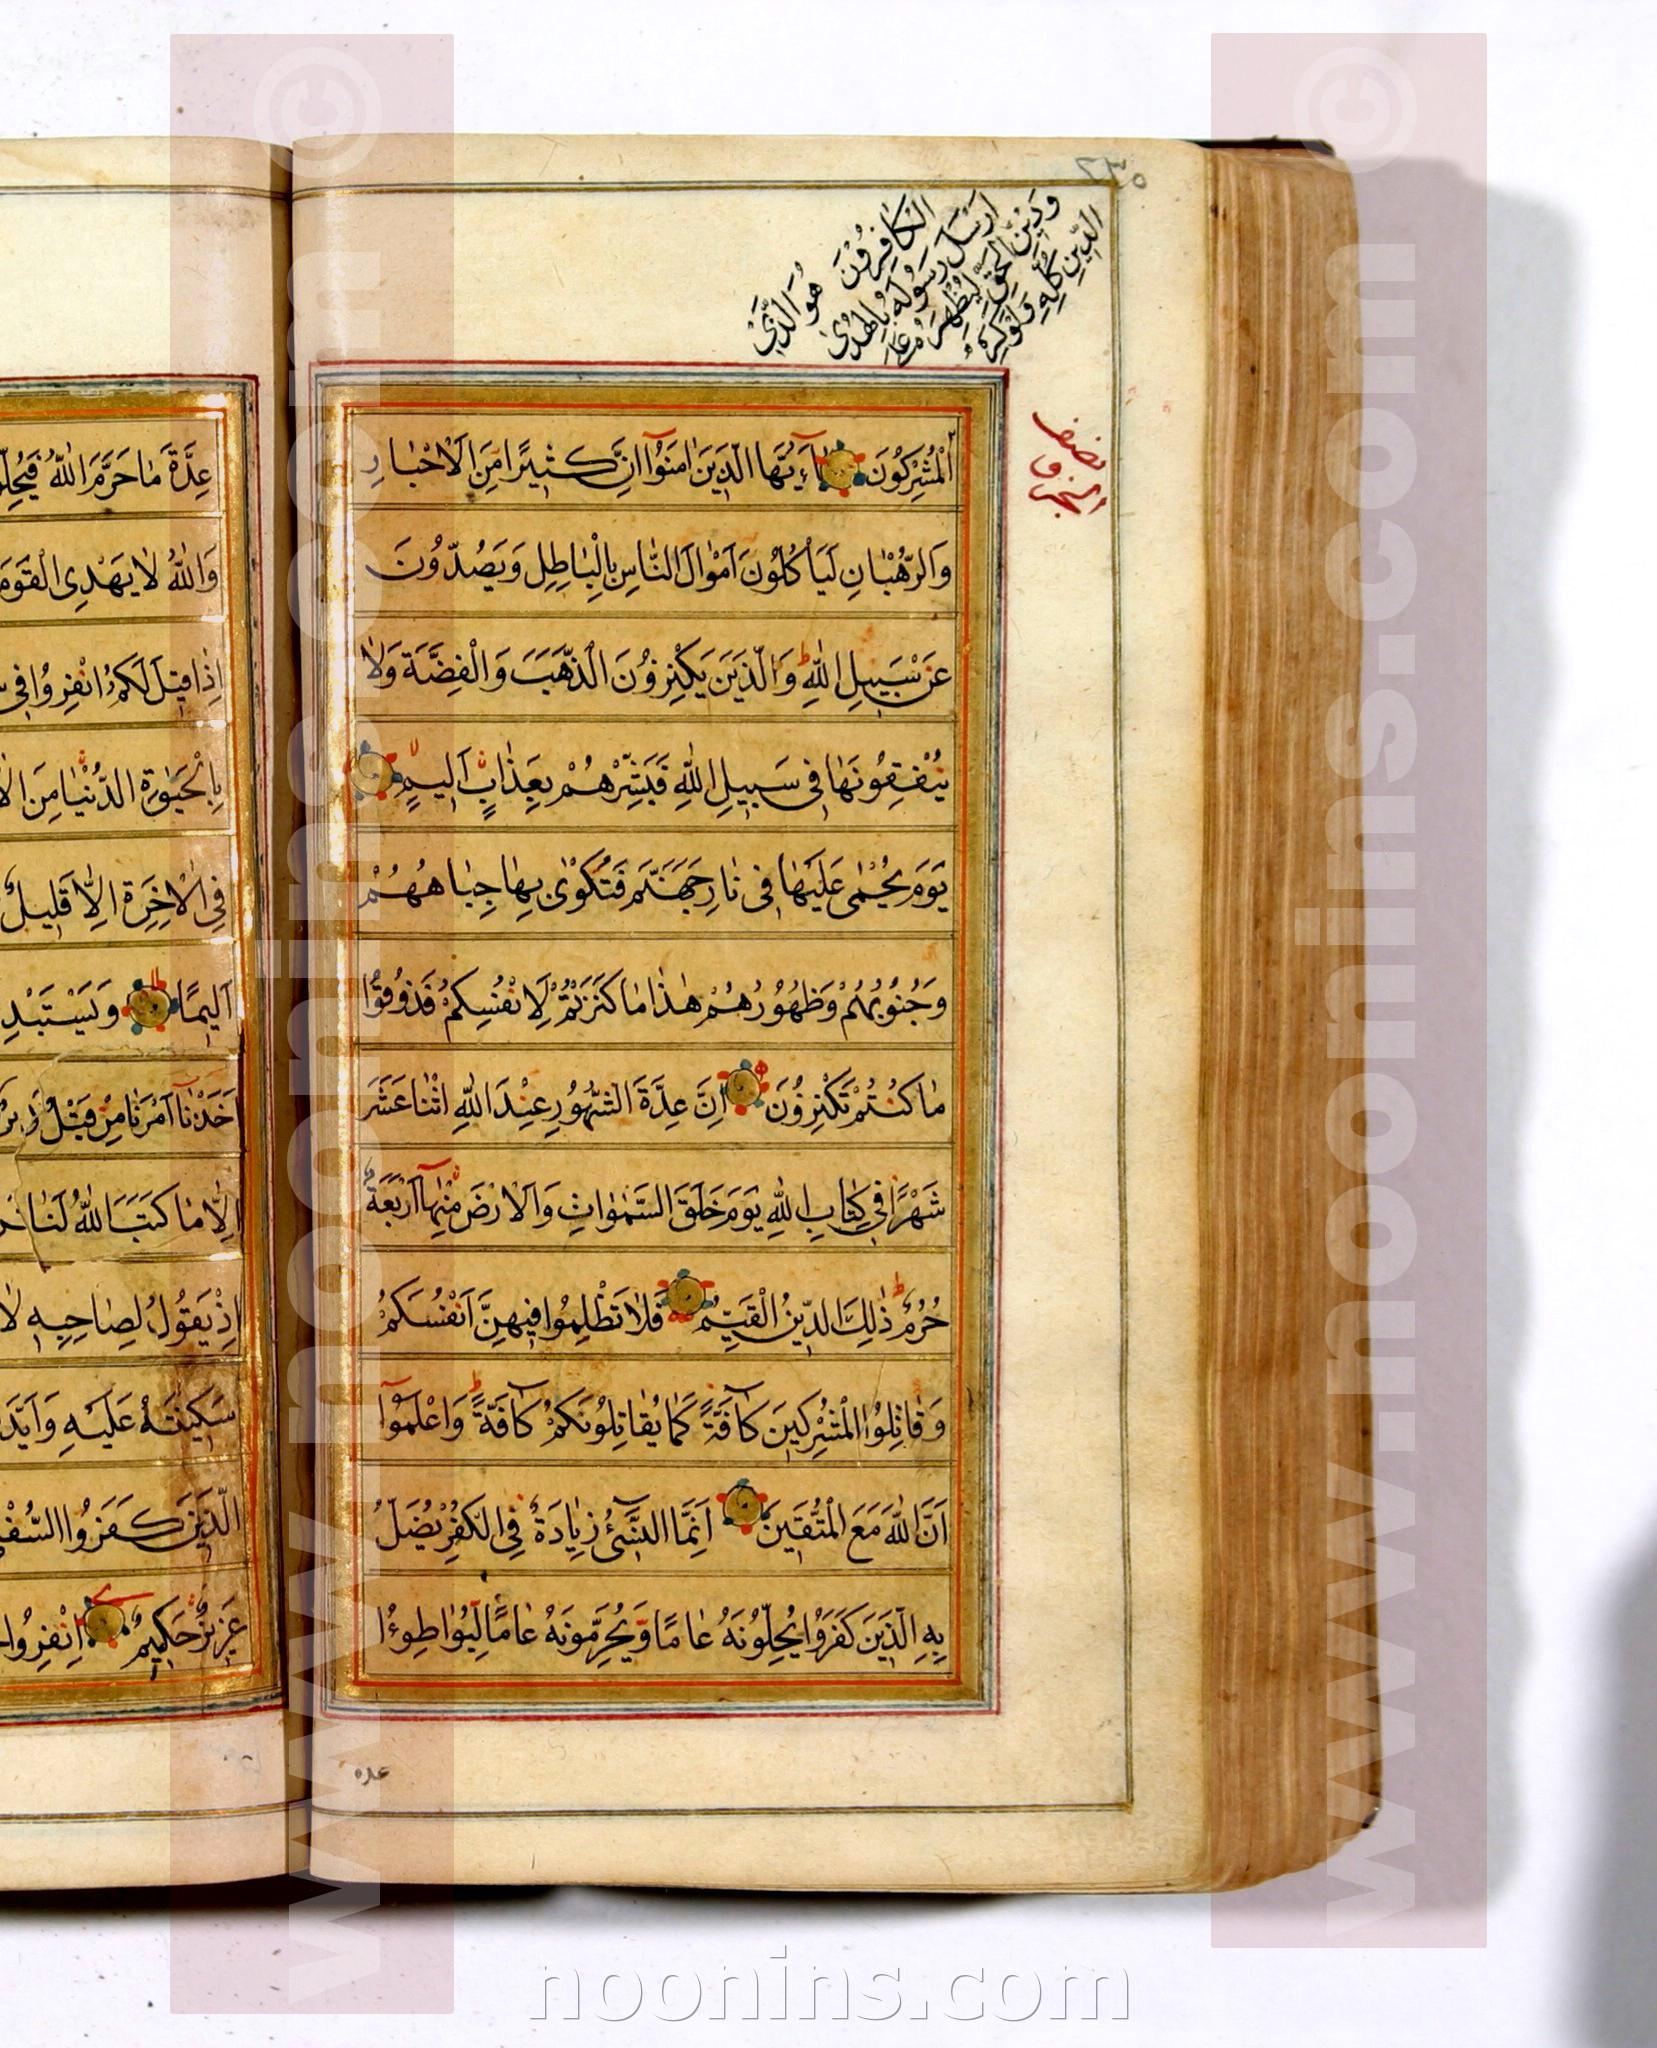 ٢٣٥
الكٰافِرُوْنَ هُوَ الَّذَّيْ
اَرْسَلَ رَسُوْلَهُ بِالْهُدٰى
وَدٖيْنِ الْحَقِّ لِيُظْهِرَهُ عَلَى
الدّٖيْنِ كُلِّهٖ وَلَوْ كَرِهَ
نصف
الجزو
الْمُشْرِكُونَ يٰآ ءَيُّهَا الَّذَينَ اٰمَنَوُآ اِنَّ كَثيٖرًا مِنَ الْاَحْبٰارِ
وَالرُّهْبٰانِ لَيَاْكُلُونَ اَمْوٰالَ النّٰاسِ بِالْبٰاطِلِ وَيَصُدّوُنَ
عَنْ سَبيٖلِ اللّٰهِ وَالَّذَينَ يَكْنِزوُنَ الذَّهَبَ وَالْفِضَّةَ وَلٰا
يُنْفِقوُنَهٰا فيٖ سَبيٖلِ اللّٰهِ فَبَشِّرْهُمْ بِعَذٰابٍ اَليٖمٍ
يَوْمَ يُحْمٰى عَلَيْهٰا فيٖ نٰارِ جَهَنَّمَ فَتُكْوٰى بِهٰا جِبٰاهُهُمْ
وَجُنُوُبُهُمْ وَظُهوُرُهُمْ هٰذٰا مٰا كَنَزْتُمْ لِاَنْفُسِكُمْ فَذوُقوُا
مٰا كُنْتُمْ تَكْنِزوُنَ اِنَّ عِدَّةَ الشُّهوُرِ عِنْدَ اللّٰهِ اثْنٰا عَشَرَ
شَهْرًا فيٖ كِتٰابِ اللّٰهِ يَوْمَ خَلَقَ السَّمٰوٰاتِ وَالْاَرْضَ مِنْهٰآ اَرْبَعَةٌ
حُرُمٌ ذٰلِكَ الدّيٖنُ الْقَيِّمُ فَلٰا تَظْلِموُا فيٖهِنَّ اَنْفُسَكُمْ
وَقٰاتِلوُا الْمُشْرِكيٖنَ كٰآفَّةً كَمٰا يُقٰاتِلوُنَكُمْ كٰآفَّةً وَاعْلَموُآ
اَنَّ اللّٰهَ مَعَ الْمُتَّقيٖنَ اِنَّمَا النَّسيٓءُ زِيٰادَةٌ فِي الْكُفْرِ يُضَلُّ
بِهِ الَّذَينَ كَفَروُا يُحِلّوُنَهُ عٰامًا وَيُحَرِّموُنَهُ عٰامًا لِيُوٰاطِؤُا
عده
عِدَّةَ مٰا حَرَّمَ اللّٰهُ فَيُحِلّوُ
وَاللّٰهُ لٰا يَهْدِي الْقَوْمَ
اِذٰا قيٖلَ لَكُمُ انْفِروُا فيٖ
بِالْحَيٰوةِ الدُّنْيٰا مِنَ الْاٰ
فِي الْاٰخِرَةِ اِلّٰا قَليٖلٌ
اَليٖمًا وَيَسْتَبْدِ
اَخَذْنٰا اَمْرَنٰا مِنْ قَبْلُ وَ
اِلّٰا مٰا كَتَبَ اللّٰهُ لَنٰا
اِذْ يَقوُلُ لِصٰاحِبِهٖ لٰا
سَكيٖنَتَهُ عَلَيْهِ وَاَيَّدَ
الَّذَينَ كَفَروُا السُّفْ
عَزيٖزٌ حَكيٖمٌ اِنْفِروُا
www.noonins.com ©
www.noonins.com ©
noonins.com